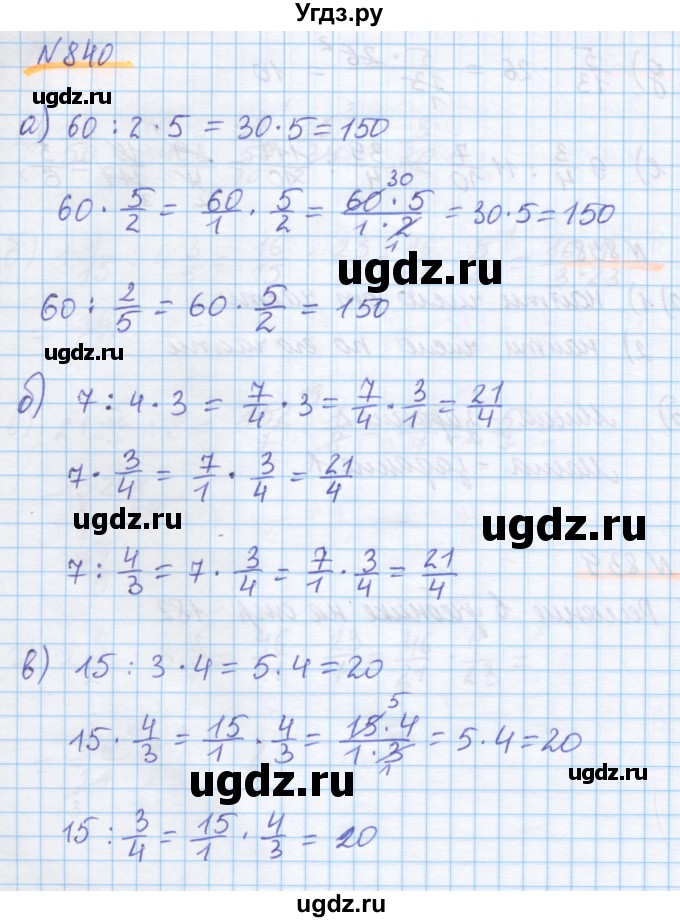 Угдз.ру
N840
ugdz.ru
а) 60 : 2 · 5 = 30 · 5 = 150
60 · 5/2 = 60/1 · 5/2 = 60 · 5/1 · 2 30 1 = 30 · 5 = 150
ugdz.ru
60 : 2/5 = 60 · 5/2 = 150
ugdz.ru
б) 7 : 4 · 3 = 7/4 · 3 = 7/4 · 3/1 = 21/4
7 · 3/4 = 7/1 · 3/4 = 21/4
ugdz.ru
ugdz.ru
7 : 4/3 = 7 · 3/4 = 7/1 · 3/4 = 21/4
в) 15 : 3 · 4 = 5 · 4 = 20
15 · 4/3 = 15/1 · 4/3 = 15 · 4/1 · 3 5 1 = 5 · 4 = 20
ugdz.ru
ugdz.ru
15 : 3/4 = 15/1 · 4/3 = 20
ugdz.ru